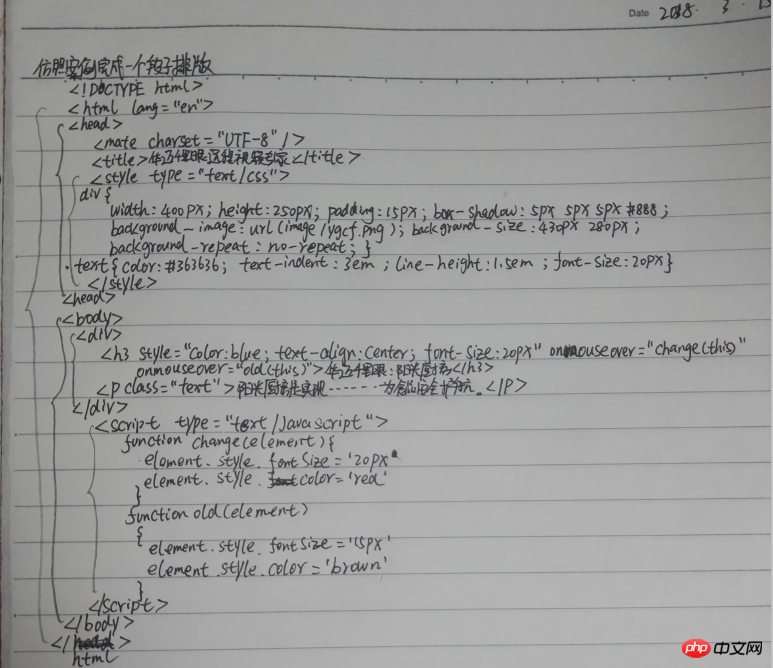 Date 2018. 3. 15
仿照案例完成一个段子排版
<!DOCTYPE html>
<html lang="en">
<head>
<mate charset="UTF-8" />
<title>千里眼远程视频专家</title>
<style type="text/css">
div{
width: 400px; height: 250px; padding: 15px; box-shadow: 5px 5px 5px #888;
background-image: url(image/ygcf.png); background-size: 430px 280px;
background-repeat: no-repeat; }
.text{color:#363636; text-indent: 3em; line-height: 1.5em; font-size: 20px}
</style>
<head>
<body>
<div>
<h3 style="color:blue; text-align:center; font-size:20px" onmouseover="change(this)"
onmouseover="old(this)">千里眼:阳光厨房</h3>
<p class="text">阳光厨房是实现------为您安全护航。</p>
</div>
<script type="text/javascript">
function change(element){
element.style.fontSize='20px'
element.style.color='red'
}
function old(element)
{
element.style.fontSize='15px'
element.style.color='brown'
}
</script>
</body>
</
html
php 中文网